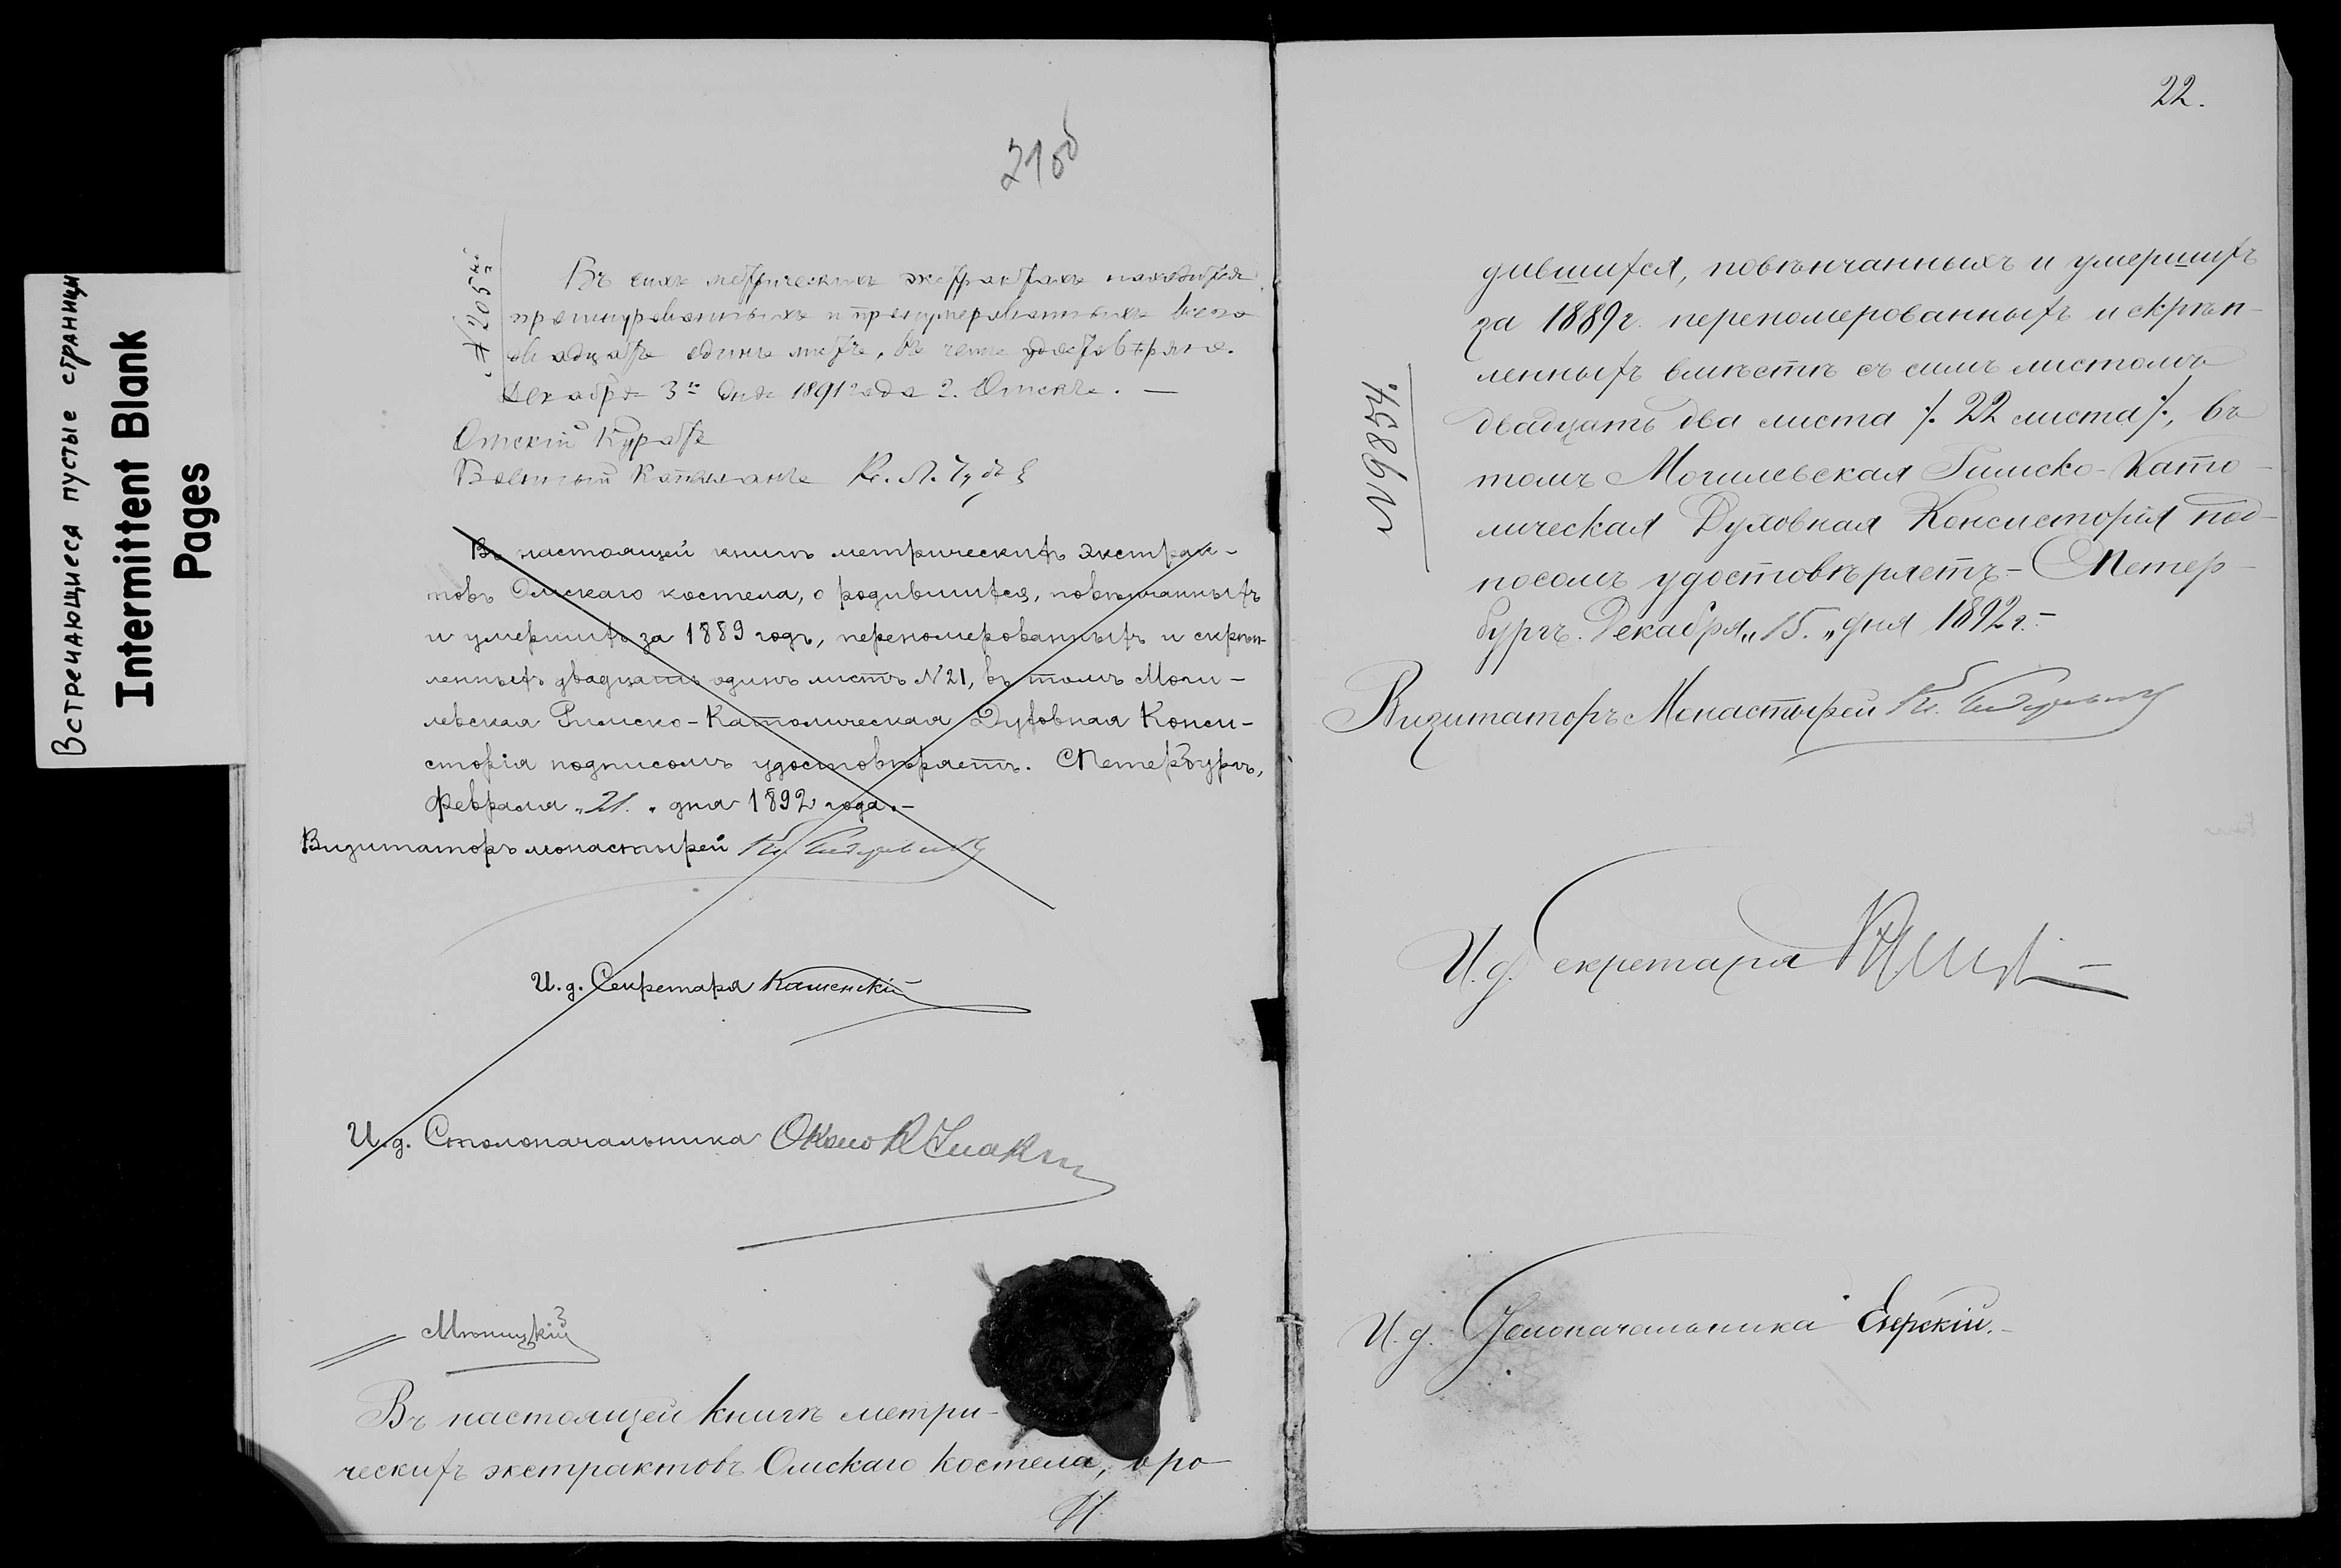 Встречающиеся пустые страницы
Intermittent Blank
Pages
21об
Въ сихъ метрическихъ экстрактахъ находится
прошнурованныхъ и пронумерованныхъ всего
двадцать одинъ листъ, въ чемъ удостовѣряю.
Декабря 3го дня 1891 года г. Омскъ. —
Омскій Куратъ
Военный Капеланъ Кс.
Въ настоящей книгѣ метрическихъ экстрак-
товъ Омскаго костела, о родившихся, повѣнчанныхъ
и умершихъ за 1889 годъ, переномерованныхъ и скрѣп-
ленныхъ двадцать одинъ листъ №21, въ томъ Моги-
левская Римско-Католическая Духовная Конси-
сторія подписомъ удостовѣряетъ. СПетербургъ,
Февраля „21.„ дня 1892 года.—
Визитаторъ монастырей
И. д. Секретаря Каменскій
И. д. Столоначальника
Въ настоящей книгѣ метри-
ческихъ экстрактовъ Омскаго костела, о ро-
22.
дившихся, повѣнчанныхъ и умершихъ
за 1889 г. переномерованныхъ и скрѣп-
ленныхъ вмѣстѣ съ симъ листомъ
двадцать два листа /. 22 листа /., въ
томъ Могилевская Римско-Като-
лическая Духовная Консисторія под-
посомъ удостовѣряетъ.- СПетер-
бургъ. Декабря „15.„ дня 1892 г.-
№ 9854.
Визитаторъ Монастырей
И. д. Секретаря
И. д. Столоначальника Езерскій.-